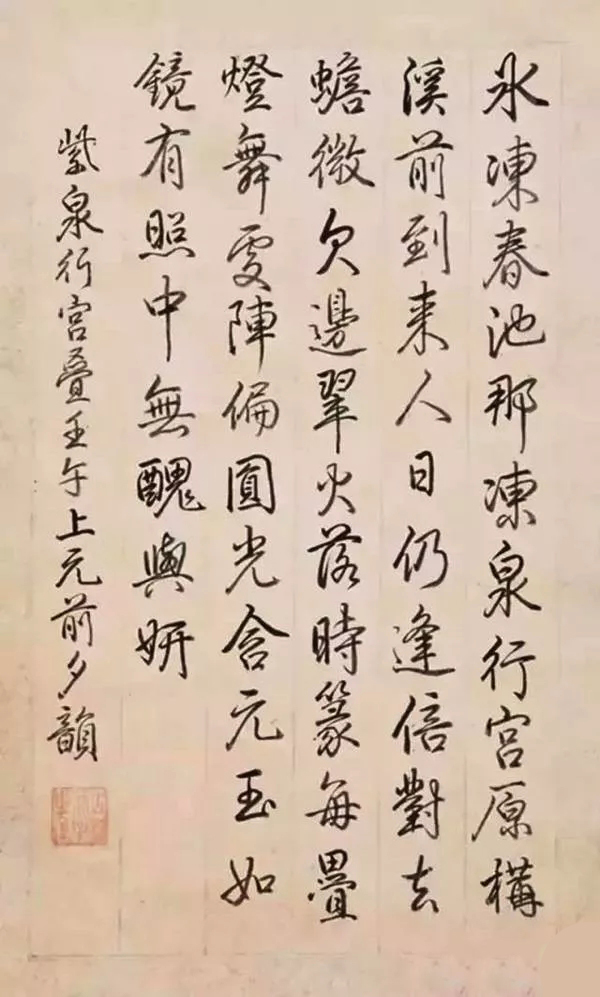 氷凍春池那凍泉行宮原構
溪前到来人日仍逢倍對去
蟾微欠邊翠火落時篆每疊
燈舞變陣偏圓光含元玉如
鏡有照中無醜與妍
紫泉行宮疊壬午上元前夕韻